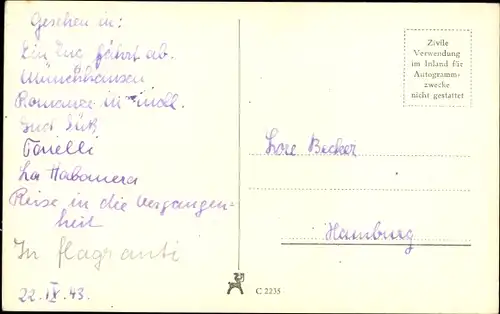 Gesehen in:
Ein Zug fährt ab.
Münchhausen
Romanze in moll.
Jud Süß
Tonelli
La Habanera
Reise in die Vergangen-
heit
In flagranti
22. IX. 43.
Zivile
Verwendung
im Inland für
Autogramm-
zwecke
nicht gestattet
Lore Becker
Hamburg
C 2235